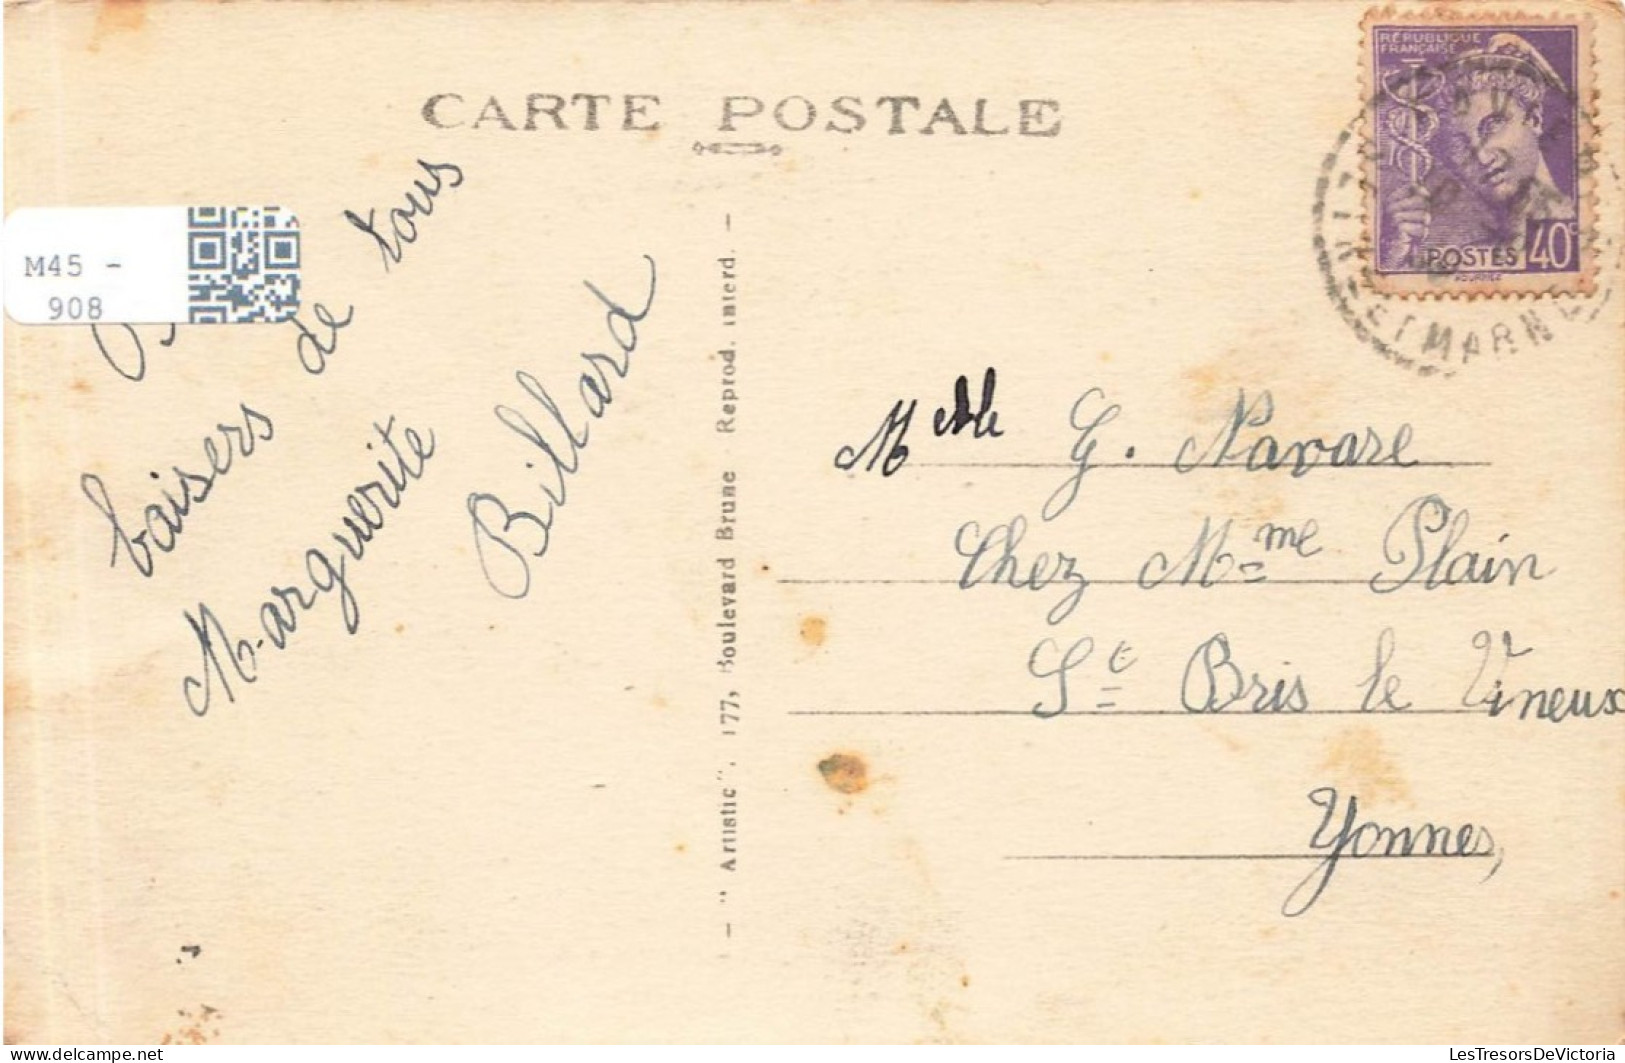 CARTE POSTALE
M45 -
908
baisers de tous
Marguerite
Billard
- " Artistic ", 177, Boulevard Brune - Reprod. interd. -
RÉPUBLIQUE
FRANÇAISE
POSTES 40c
ET MARNE
Melle G. Navare
Chez Mme Plain
St Bris le Vineux
Yonnes,
LesTresorsDeVictoria
delcampe.net